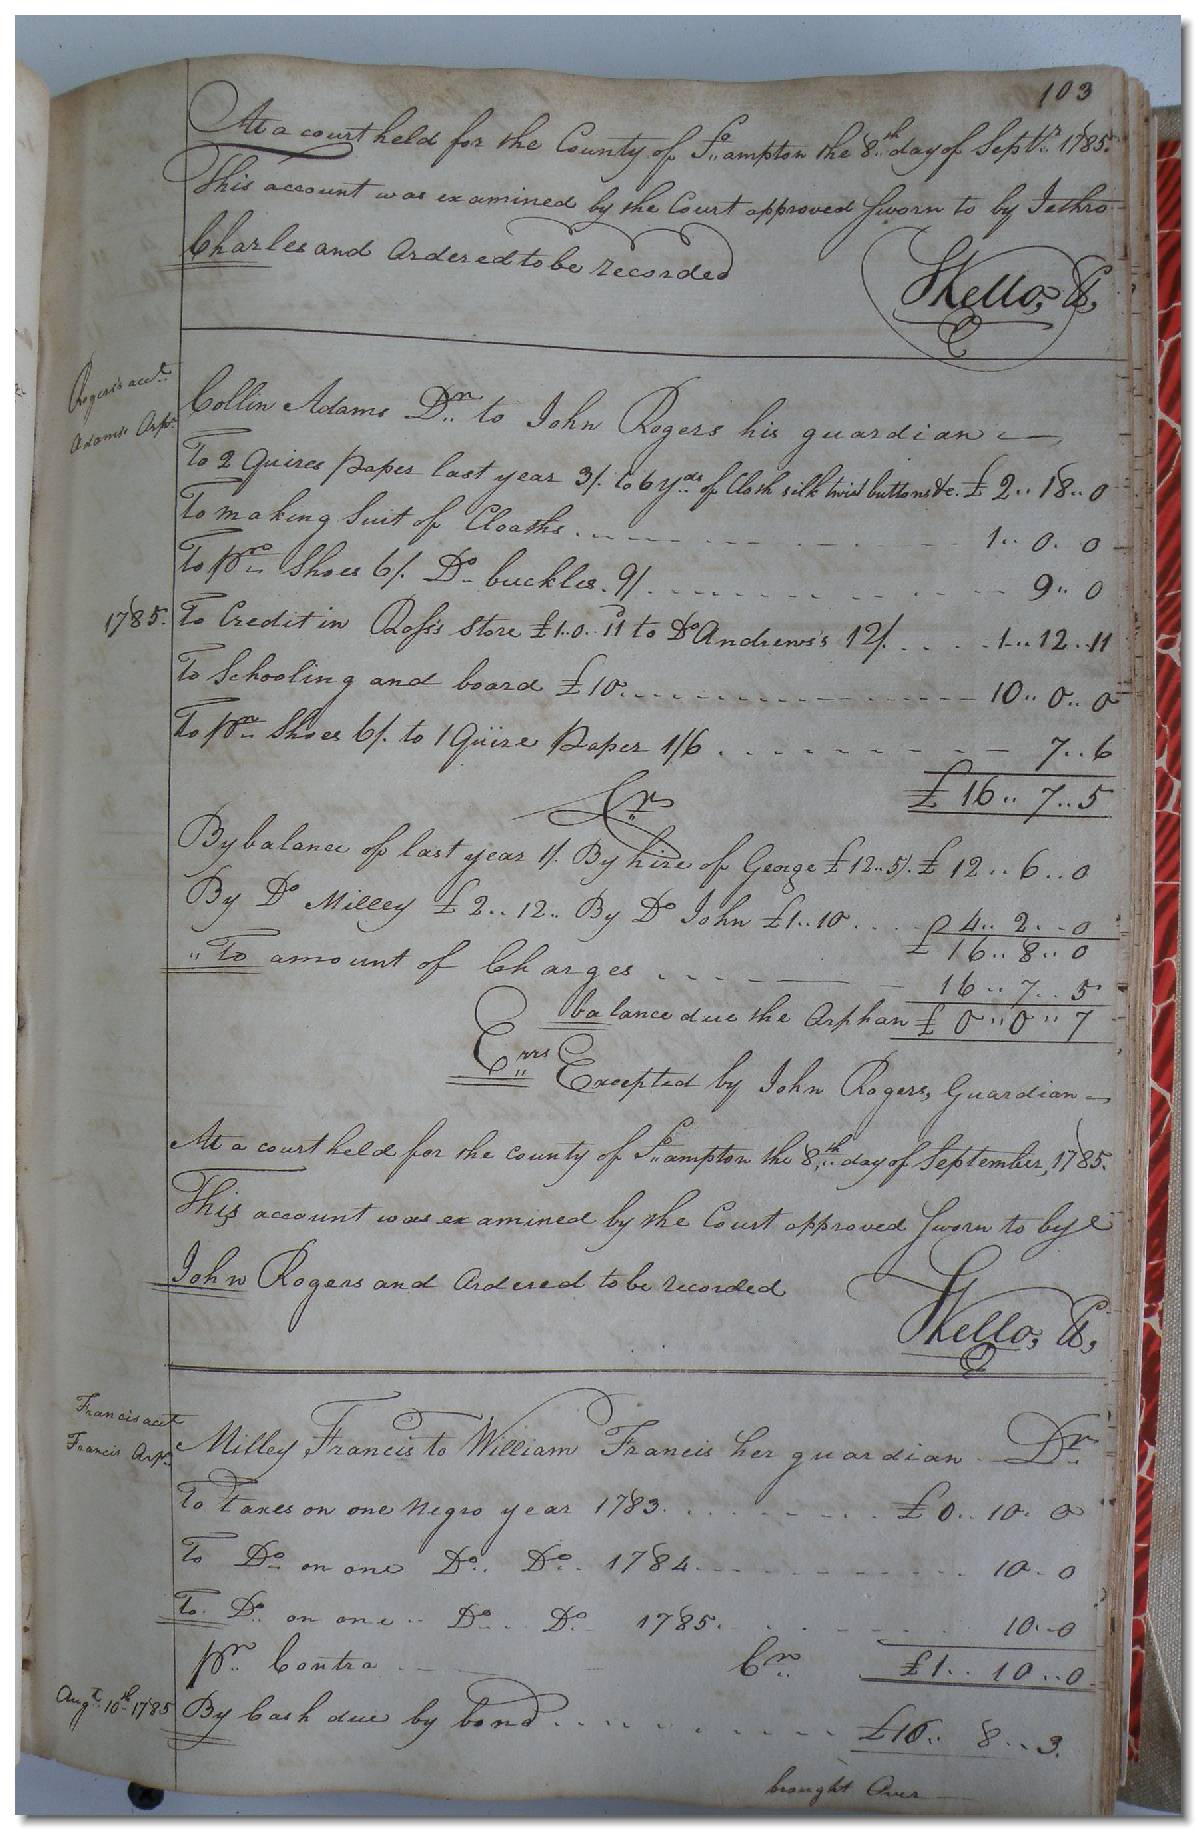 103
At a court held for the County of So..ampton the 8th day of Septr. 1785.
This account was examined by the Court approved Sworn to by Jethro
Charles and Ordered to be recorded
SKello, Ct,
Rogers's acct.
Adams's Orpn.
Collin Adams Dr. to John Rogers his guardian
To 2 Quires Paper last year 3/. to 6 yds. of Cloth silk twist buttons &c. £ 2..18..0
To making Suit of Cloaths. 1..0.0
To pr. Shoes 6/. Do buckles. 9/. 9..0
1785. To Credit in Ross's Store £1.0..11 to Do Andrews's 12/. 1..12..11
To Schooling and board £10. 10..0..0
To pr. Shoes 6/. to 1 Quire Paper 1/6 7..6
£ 16..7..5
Cr.
By balance of last year 1/. By hire of George £12..5/. £ 12..6..0
By Do Milley £2..12.. By Do John £1..10 4..2..0
£ 16..8..0
" To amount of Charges 16..7..5
balance due the Orphan £ 0..0..7
Errs Excepted by John Rogers, Guardian
At a court held for the county of So..ampton the 8th day of September, 1785.
This account was examined by the Court approved Sworn to by
John Rogers and Ordered to be recorded
SKello, Ct,
Francis acct
Francis Orpn.
Milley Francis to William Francis her guardian Dr.
To taxes on one negro year 1783. £0..10.0
To Do on one Do. Do. 1784 10..0
To Do on one.. Do.. Do. 1785. 10..0
pr. Contra Cr. £1..10..0
Augt. 10th 1785 By Cash due by bond £16..8..3.
brought Over